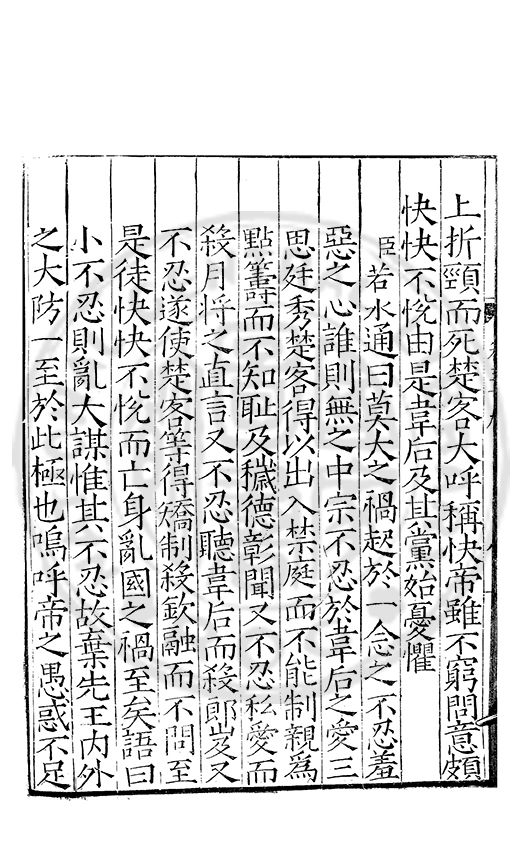 上折頸而死楚客大呼稱快帝雖不窮問意頗
快快不恱由是韋后及其黨始憂懼
臣若水通曰莫大之禍起於一念之不忍羞
惡之心誰則無之中宗不忍於韋后之愛三
思廷秀楚客得以出入禁庭而不能制親爲
點籌而不知耻及穢德彰聞又不忍私愛而
殺月將之直言又不忍聽韋后而殺郎岌又
不忍遂使楚客等得矯制殺欽融而不問至
是徒快快不恱而亡身亂國之禍至矣語曰
小不忍則亂大謀惟其不忍故棄先王内外
之大防一至於此極也嗚呼帝之愚惑不足